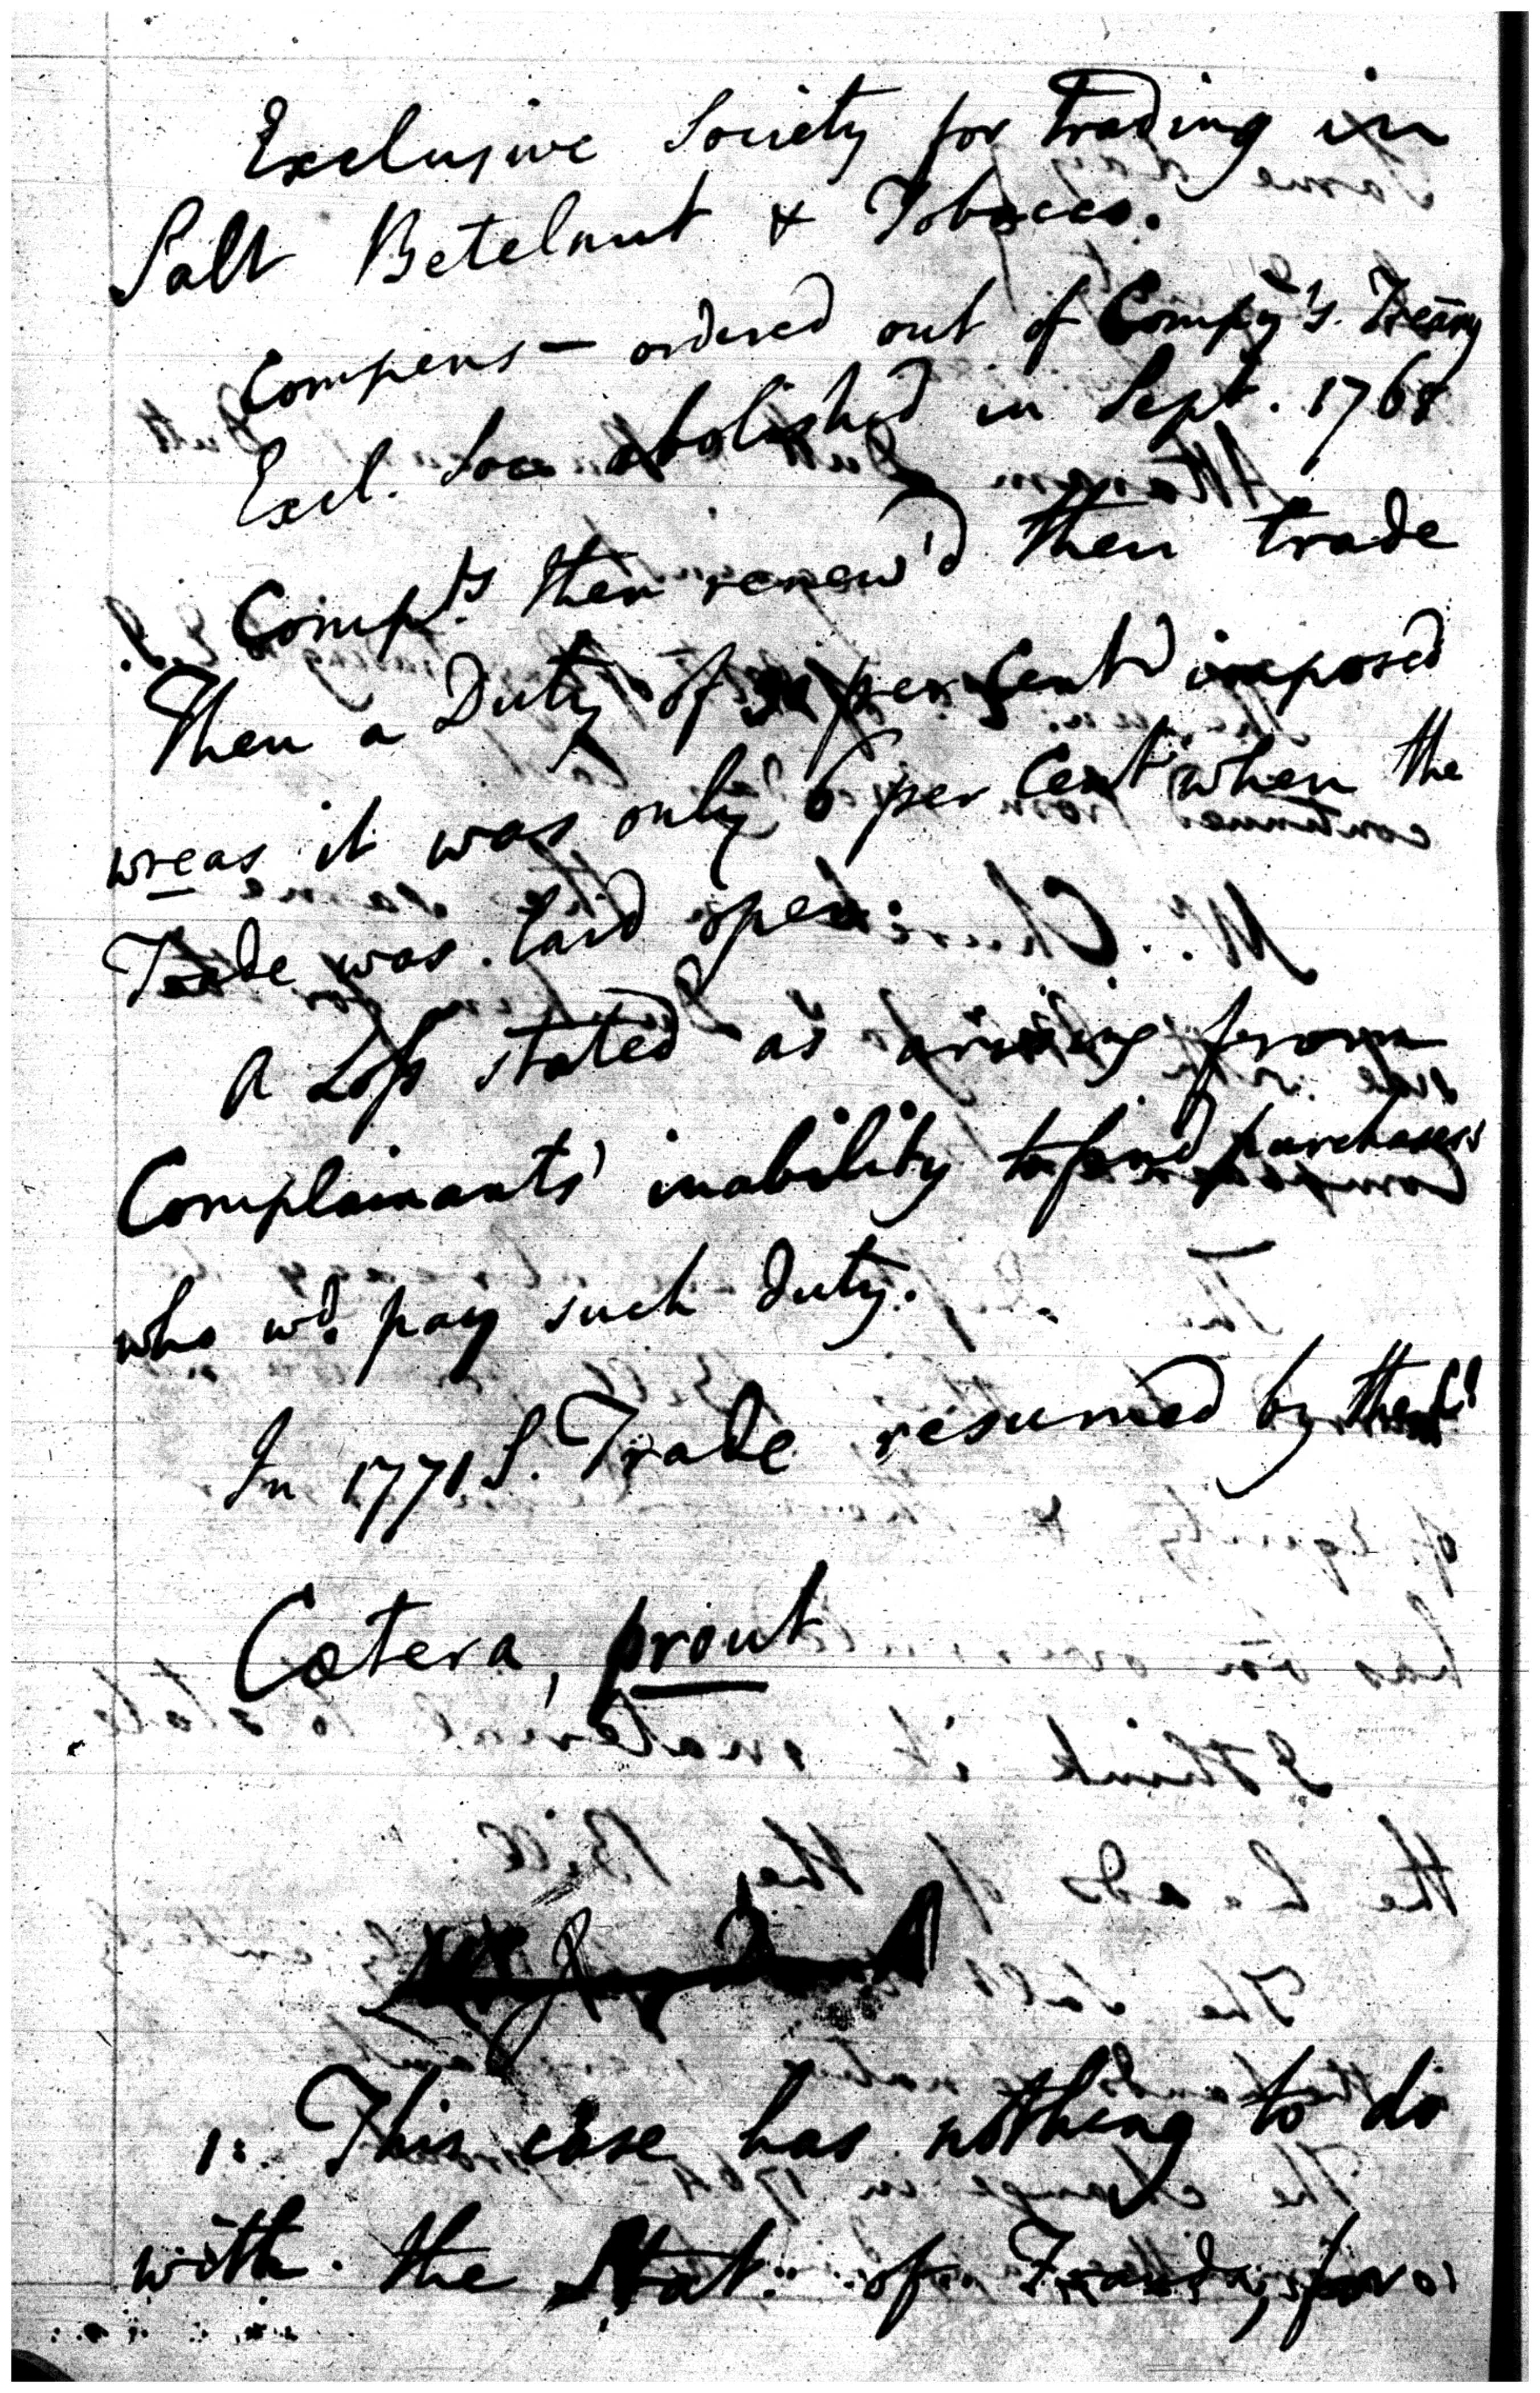 Exclusive Society for trading in
Salt Betelnut & Tobacco.
Compens— ordered out of Compy's. Treãry
Excl. Soc abolished in Sept. 1768
Compl.ts then renew'd their trade
Then a Duty of 30 per Cent imposed
wreas it was only 6 per Cent when the
Trade was laid open.
A Loss stated as arising from
Complainants' inability to find purchasers
who wd. pay such duty.
In 1771 S. Trade resumed by the
Cætera, prout
1: This case has nothing to do
with the Stat: of Frauds, for